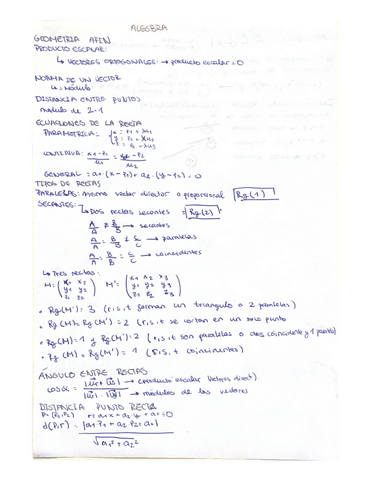 ALGEBRA
GEOMETRIA AFÍN
PRODUCTO ESCALAR:
↳ VECTORES ORTOGONALES: → producto escalar = 0
NORMA DE UN VECTOR
↳ = módulo
DISTANCIA ENTRE PUNTOS
módulo de 2-1
ECUACIONES DE LA RECTA
PARAMETRICA =
CONTINUA:
GENERAL = a₁ (x - p₁) + a₂ (y - p₂) = 0
TIPOS DE RECTAS
PARALELAS: mismo vector director o proporcional Rg(1)
SECANTES:
↳ DOS rectas secantes = Rg(2)
A/A ≠ B/B → secantes
A/A = B/B ≠ C/C → paralelas
A/A = B/B = C/C → coincidentes
↳ Tres rectas:
M: (x₁ x₂ y₁ y₂ z₁ z₂) M': (x₁ x₂ x₃ y₁ y₂ y₃ z₁ z₂ z₃)
• Rg(M'): 3 (r,s,t forman un triangulo o 2 paralelas)
• Rg(M) = Rg(M') = 2 (r,s,t se cortan en un solo punto
• Rg(M) = 1 y Rg(M'): 2 (r,s,t son paralelas o dos coincidente y 1 paralela)
• Rg (M) = Rg(M') = 1 (r,s,t coincidentes)
ÁNGULO ENTRE RECTAS
cos α = → (producto escalar vectores direct)
→ módulos de los vectores
DISTANCIA PUNTO RECTA
P: (P₁, P₂) r: a₁x + a₂y + a₀ = 0
d(P,r): |a₁P₁ + a₂P₂ + a₀|
√a₁² + a₂²